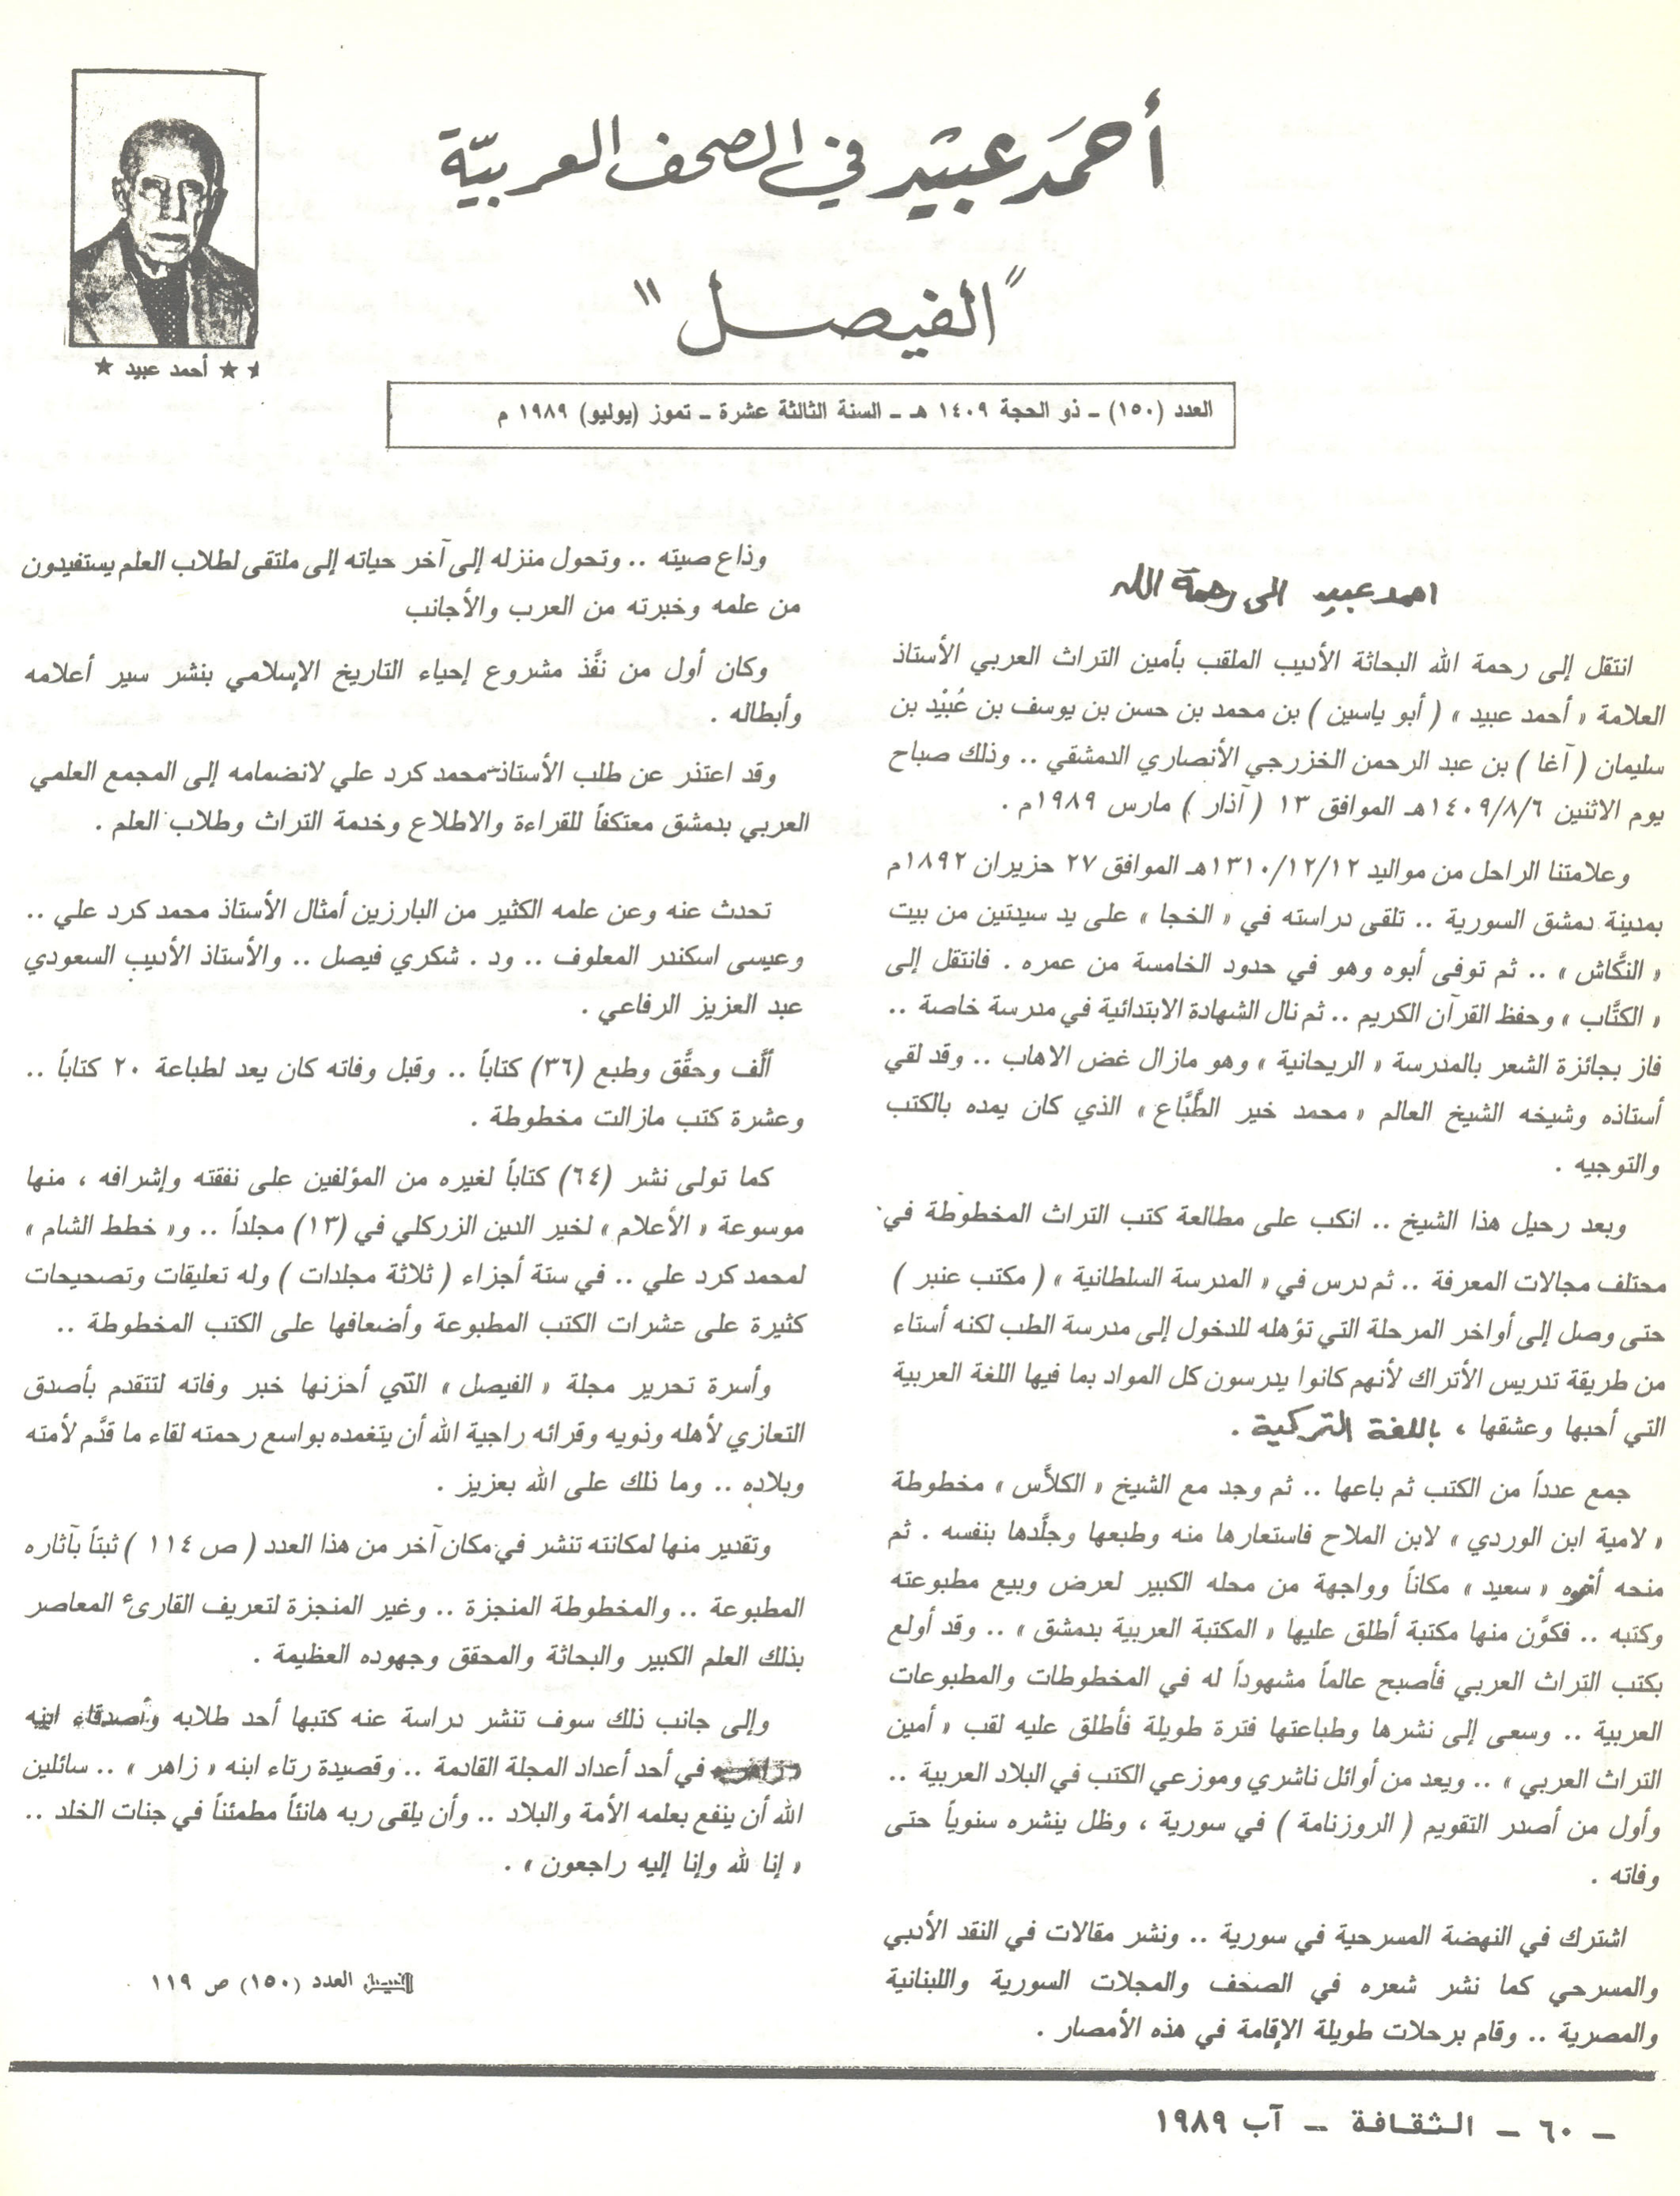 أحمد عبيد في الصحف العربية
"الفيصل"
★ ★ أحمد عبيد ★
العدد (١٥٠) ـ ذو الحجة ١٤٠٩ هـ ـ السنة الثالثة عشرة ـ تموز (يوليو) ١٩٨٩ م
احمد عبيد الى رحمة الله
انتقل إلى رحمة الله البحاثة الأديب الملقب بأمين التراث العربي الأستاذ
العلامة « أحمد عبيد » ( أبو ياسين ) بن محمد بن حسن بن يوسف بن عُبَيْد بن
سليمان ( آغا ) بن عبد الرحمن الخزرجي الأنصاري الدمشقي .. وذلك صباح
يوم الاثنين ١٤٠٩/٨/٦هـ الموافق ١٣ ( آذار ) مارس ١٩٨٩م .
وعلامتنا الراحل من مواليد ١٣١٠/١٢/١٢هـ الموافق ٢٧ حزيران ١٨٩٢م
بمدينة دمشق السورية .. تلقى دراسته في « الخجا » على يد سيدتين من بيت
« النكَّاش » .. ثم توفى أبوه وهو في حدود الخامسة من عمره . فانتقل إلى
« الكتَّاب » وحفظ القرآن الكريم .. ثم نال الشهادة الابتدائية في مدرسة خاصة ..
فاز بجائزة الشعر بالمدرسة « الريحانية » وهو مازال غض الاهاب .. وقد لقي
أستاذه وشيخه الشيخ العالم « محمد خير الطَّبَّاع » الذي كان يمده بالكتب
والتوجيه .
وبعد رحيل هذا الشيخ .. انكب على مطالعة كتب التراث المخطوطة في
محتلف مجالات المعرفة .. ثم درس في « المدرسة السلطانية » ( مكتب عنبر )
حتى وصل إلى أواخر المرحلة التي تؤهله للدخول إلى مدرسة الطب لكنه أستاء
من طريقة تدريس الأتراك لأنهم كانوا يدرسون كل المواد بما فيها اللغة العربية
التي أحبها وعشقها ، باللغة التركية .
جمع عدداً من الكتب ثم باعها .. ثم وجد مع الشيخ « الكلاَّس » مخطوطة
« لامية ابن الوردي » لابن الملاح فاستعارها منه وطبعها وجلَّدها بنفسه . ثم
منحه أخوه « سعيد » مكاناً وواجهة من محله الكبير لعرض وبيع مطبوعته
وكتبه .. فكوَّن منها مكتبة أطلق عليها « المكتبة العربية بدمشق » .. وقد أولع
بكتب التراث العربي فأصبح عالماً مشهوداً له في المخطوطات والمطبوعات
العربية .. وسعى إلى نشرها وطباعتها فترة طويلة فأطلق عليه لقب « أمين
التراث العربي » .. ويعد من أوائل ناشري وموزعي الكتب في البلاد العربية ..
وأول من أصدر التقويم ( الروزنامة ) في سورية ، وظل ينشره سنوياً حتى
وفاته .
اشترك في النهضة المسرحية في سورية .. ونشر مقالات في النقد الأدبي
والمسرحي كما نشر شعره في الصحف والمجلات السورية واللبنانية
والمصرية .. وقام برحلات طويلة الإقامة في هذه الأمصار .
وذاع صيته .. وتحول منزله إلى آخر حياته إلى ملتقى لطلاب العلم يستفيدون
من علمه وخبرته من العرب والأجانب
وكان أول من نفَّذ مشروع إحياء التاريخ الإسلامي بنشر سير أعلامه
وأبطاله .
وقد اعتذر عن طلب الأستاذ محمد كرد علي لانضمامه إلى المجمع العلمي
العربي بدمشق معتكفاً للقراءة والاطلاع وخدمة التراث وطلاب العلم .
تحدث عنه وعن علمه الكثير من البارزين أمثال الأستاذ محمد كرد علي ..
وعيسى اسكندر المعلوف .. ود . شكري فيصل .. والأستاذ الأديب السعودي
عبد العزيز الرفاعي .
ألَّف وحقَّق وطبع (٣٦) كتاباً .. وقبل وفاته كان يعد لطباعة ٢٠ كتاباً ..
وعشرة كتب مازالت مخطوطة .
كما تولى نشر (٦٤) كتاباً لغيره من المؤلفين على نفقته وإشرافه ، منها
موسوعة « الأعلام » لخير الدين الزركلي في (١٣) مجلداً .. و« خطط الشام »
لمحمد كرد علي .. في ستة أجزاء ( ثلاثة مجلدات ) وله تعليقات وتصحيحات
كثيرة على عشرات الكتب المطبوعة وأضعافها على الكتب المخطوطة ..
وأسرة تحرير مجلة « الفيصل » التي أحزنها خبر وفاته لتتقدم بأصدق
التعازي لأهله وذويه وقرائه راجية الله أن يتغمده بواسع رحمته لقاء ما قدَّم لأمته
وبلاده .. وما ذلك على الله بعزيز .
وتقدير منها لمكانته تنشر في مكان آخر من هذا العدد ( ص ١١٤ ) ثبتاً بآثاره
المطبوعة .. والمخطوطة المنجزة .. وغير المنجزة لتعريف القارىء المعاصر
بذلك العلم الكبير والبحاثة والمحقق وجهوده العظيمة .
وإلى جانب ذلك سوف تنشر دراسة عنه كتبها أحد طلابه وأصدقاء ابنه
في أحد أعداد المجلة القادمة .. وقصيدة رثاء ابنه « زاهر » .. سائلين
الله أن ينفع بعلمه الأمة والبلاد .. وأن يلقى ربه هانئاً مطمئناً في جنات الخلد ..
« إنا لله وإنا إليه راجعون » .
الفيصل العدد (١٥٠) ص ١١٩
ـ ٦٠ ـ الثقافة ـ آب ١٩٨٩